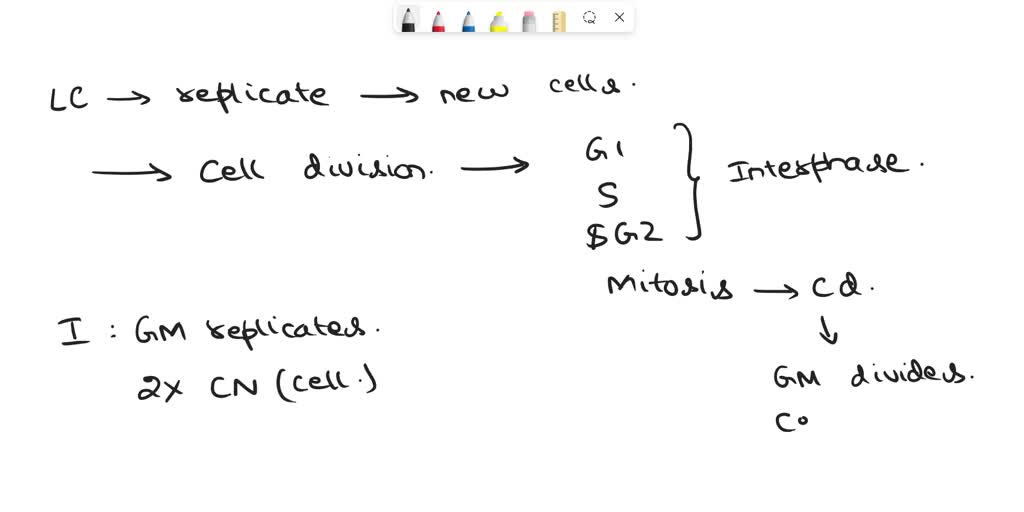 LC → replicate → new cells.
→ Cell division. → G1
S
G2
} Interphase.
Mitosis → Cd.
↓
I : GM replicates.
2X CN (cell.)
GM divides.
Co